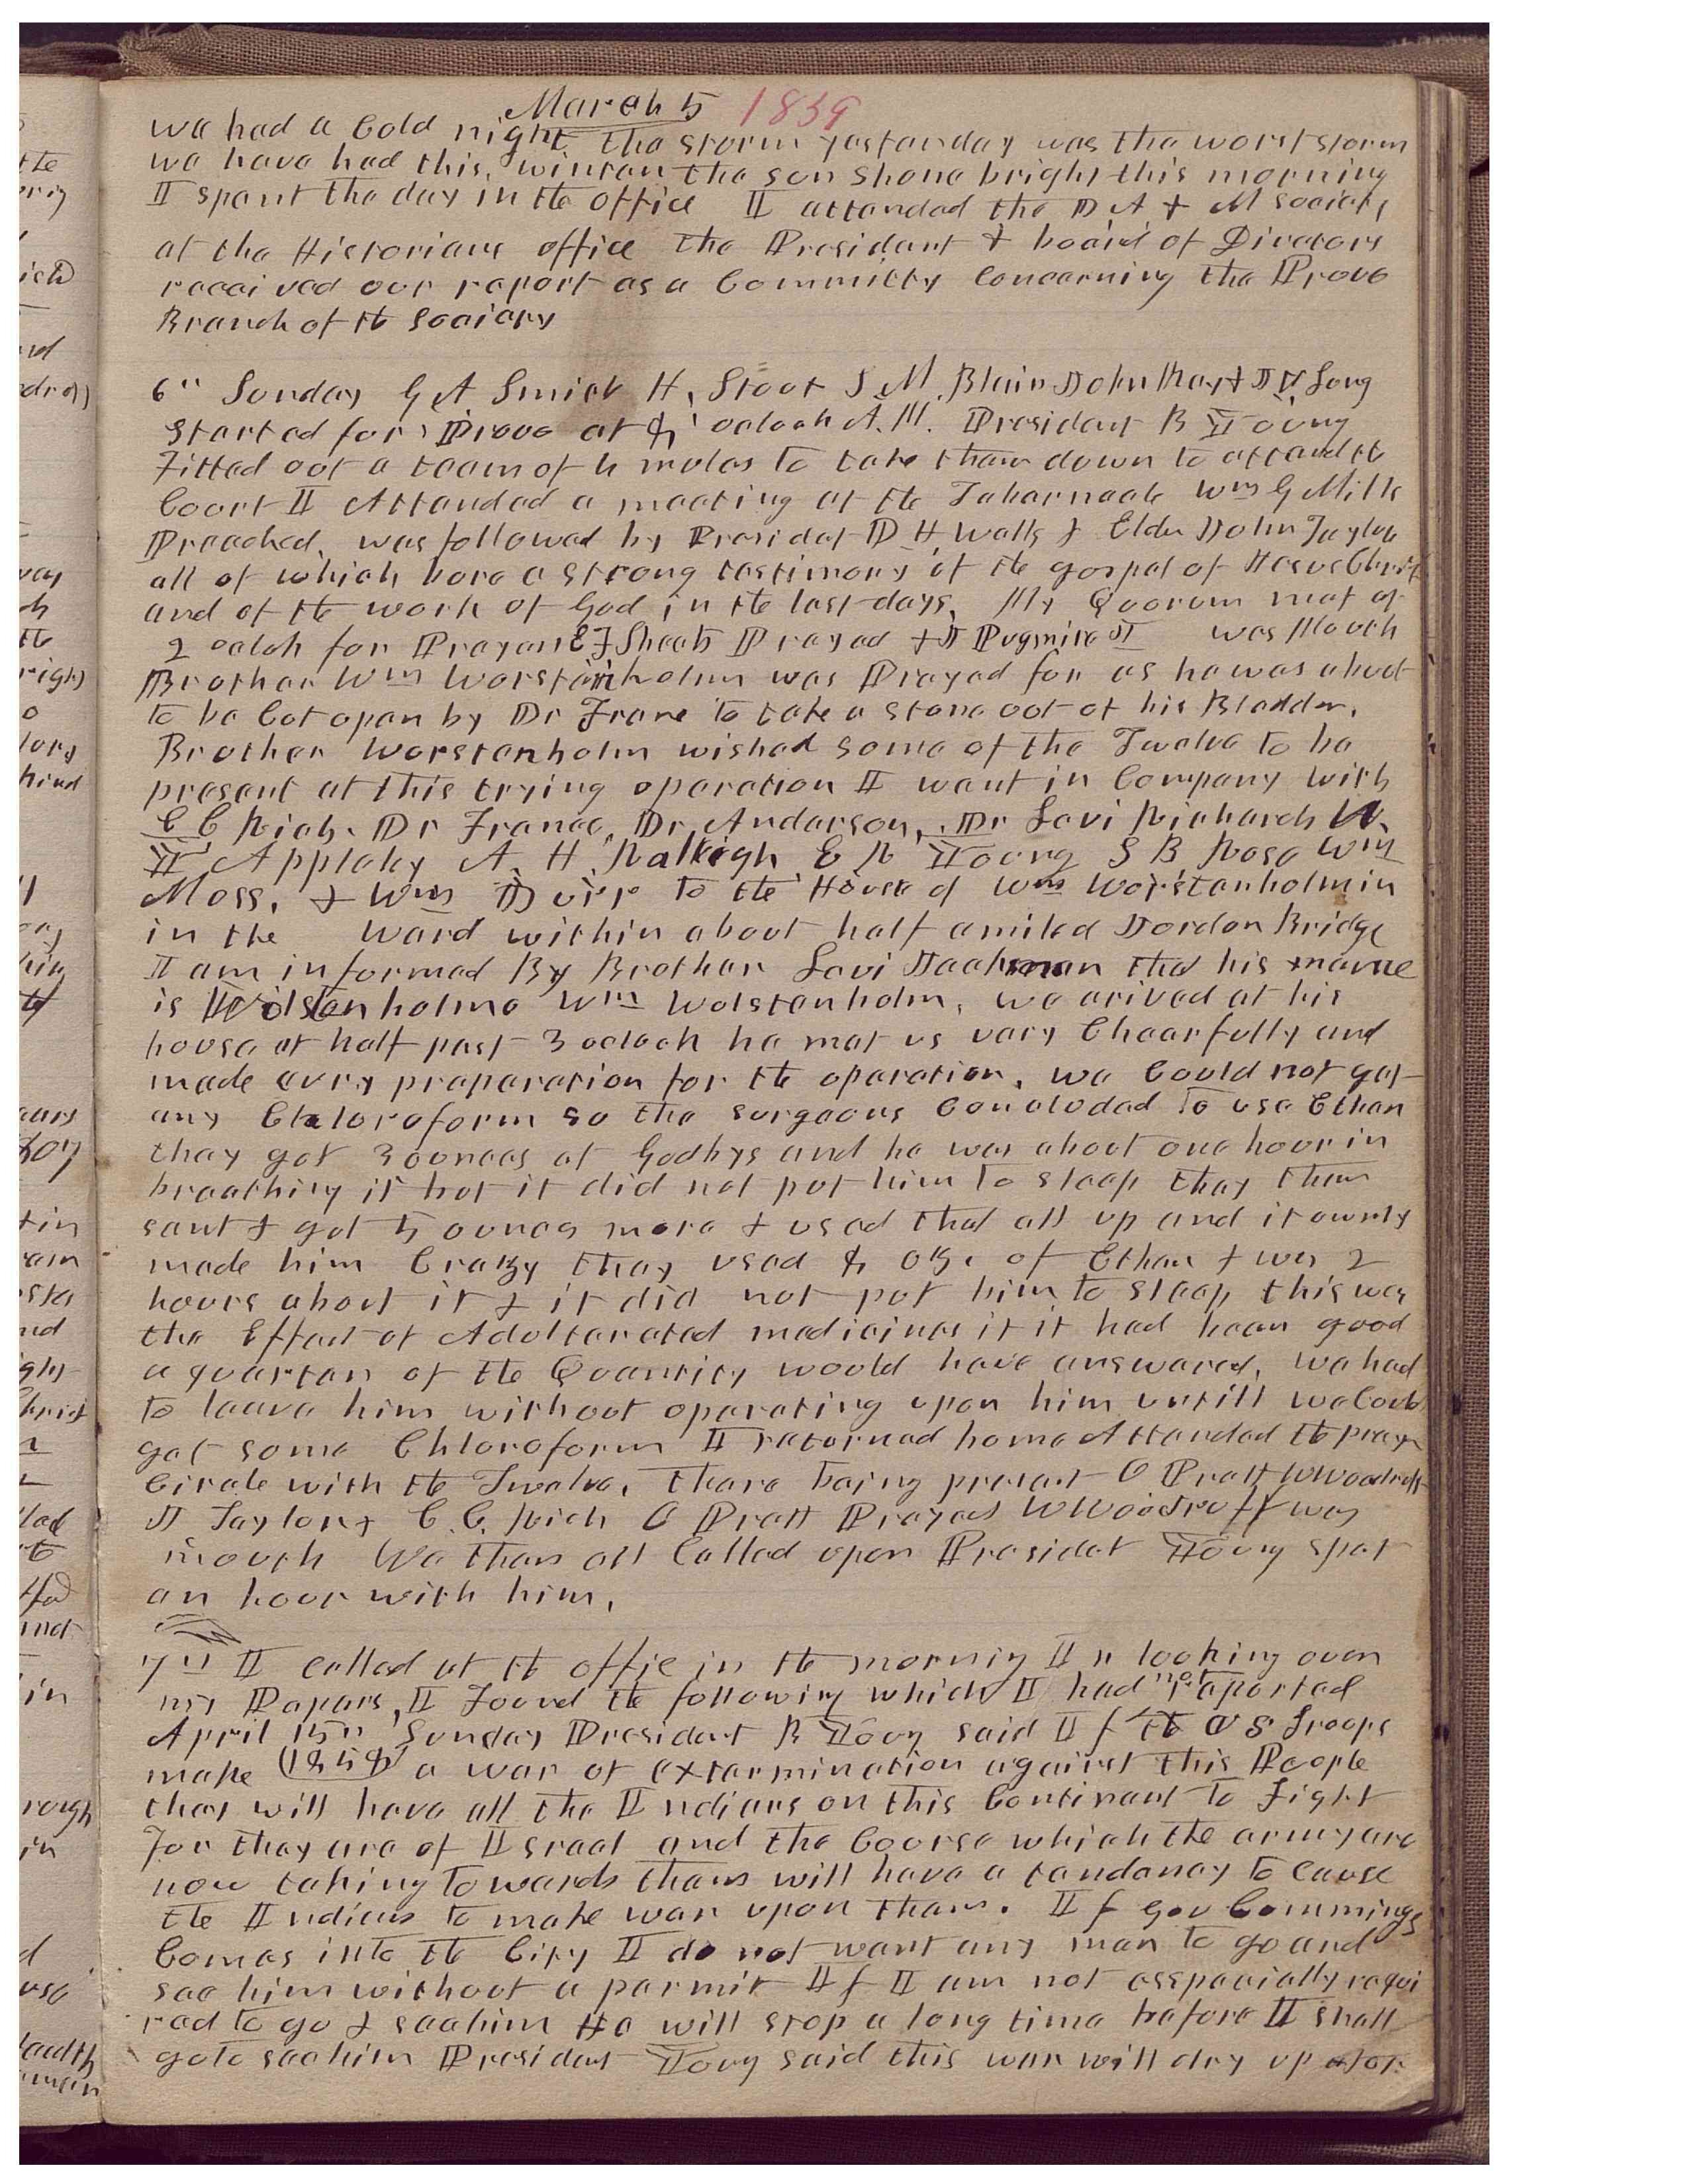 March 5 1859
we had a Cold night the storm yesterday was the worst storm
we have had this winter the sun shone bright this morning
I spent the day in the office I attended the D, A, & M society
at the Historians office the President & board of Directors
received our report as a Committy Concerning the Provo
Branch of the Society
6" Sunday G A Smith H, Stout S M, Blair John Kay & J V, Long
Started for Provo at 8 oclock A.M. President B Young
Fitted out a team of 4 mules to take them down to attend the
Court I Attended a meeting at the Tabernacle Wm G Mills
Preached, was followed by Presidet D H, Wells & Elder John Taylor
all of which bore a strong testimony of the gospel of Jesus Christ
and of the work of God in the last days, My Quorum met at
2 oclok for Prayer E F Sheets Prayed & J Pugmire Jr was Mouth
Brother Wm Worstenholm was Prayed for as he was about
to be Cut open by Dr Frane to take a stone out of his Bladder,
Brother Worstenholm wished some of the Twelve to be
present at this trying operation I went in Company with
C C Rich, Dr France, Dr, Anderson, Dr Levi Richards W.
I Appleby A. H. Raleigh E R Young S B Rose Wm
Moss, & Wm Derr to the House of Wm Worstenholmin
in the Ward within about half a mile d Jordon Bridge
I am informed By Brother Levi Jackman that his name
is Wolstenholme Wm Wolstenholm, we arived at his
house at half past 3 oclock he met us very Chearfully and
made evry preparation for the operation, we Could not get
any Chloroform so the surgeons Concluded to use Ether
they got 3 ounces at Godbys and he was about one hour in
breathing it but it did not put him to sleep they then
sent & got 5 ounces more & used that all up and it ownly
made him Crazy they used 8 oz. of Ether & was 2
hours about it & it did not put him to sleep, this was
the Effect of Adulterated medicines if it had been good
a quarter of the Quantity would have answered, we had
to leave him without operating upon him untill we Could
get some Chloroform I returned home Attended the prayer
Circle with the Twelve, there being present O Pratt W Woodruff
J Taylor & C. C. Rich O Pratt Prayed W Woodruff was
mouth We then all Called upon Presidet Young spet
an hour with him,
7" I called at the offie in the morning I n looking over
my Papers, I Found the following which I had not reported
April 15" Sunday President B Young said I f the U S Troops
make (1858) a war of extermination against this People
they will have all the Indians on this Continant to Fight
For they are of Israel and the Course which the army are
now taking towards them will have a tendancy to cause
the Indians to make war upon them. If Gov Cummings
Comes into the City I do not want any man to go and
see him without a permit If I am not esspecially requi
red to go & see him He will stop a long time before I shall
go to see him President Young said this war will dry up